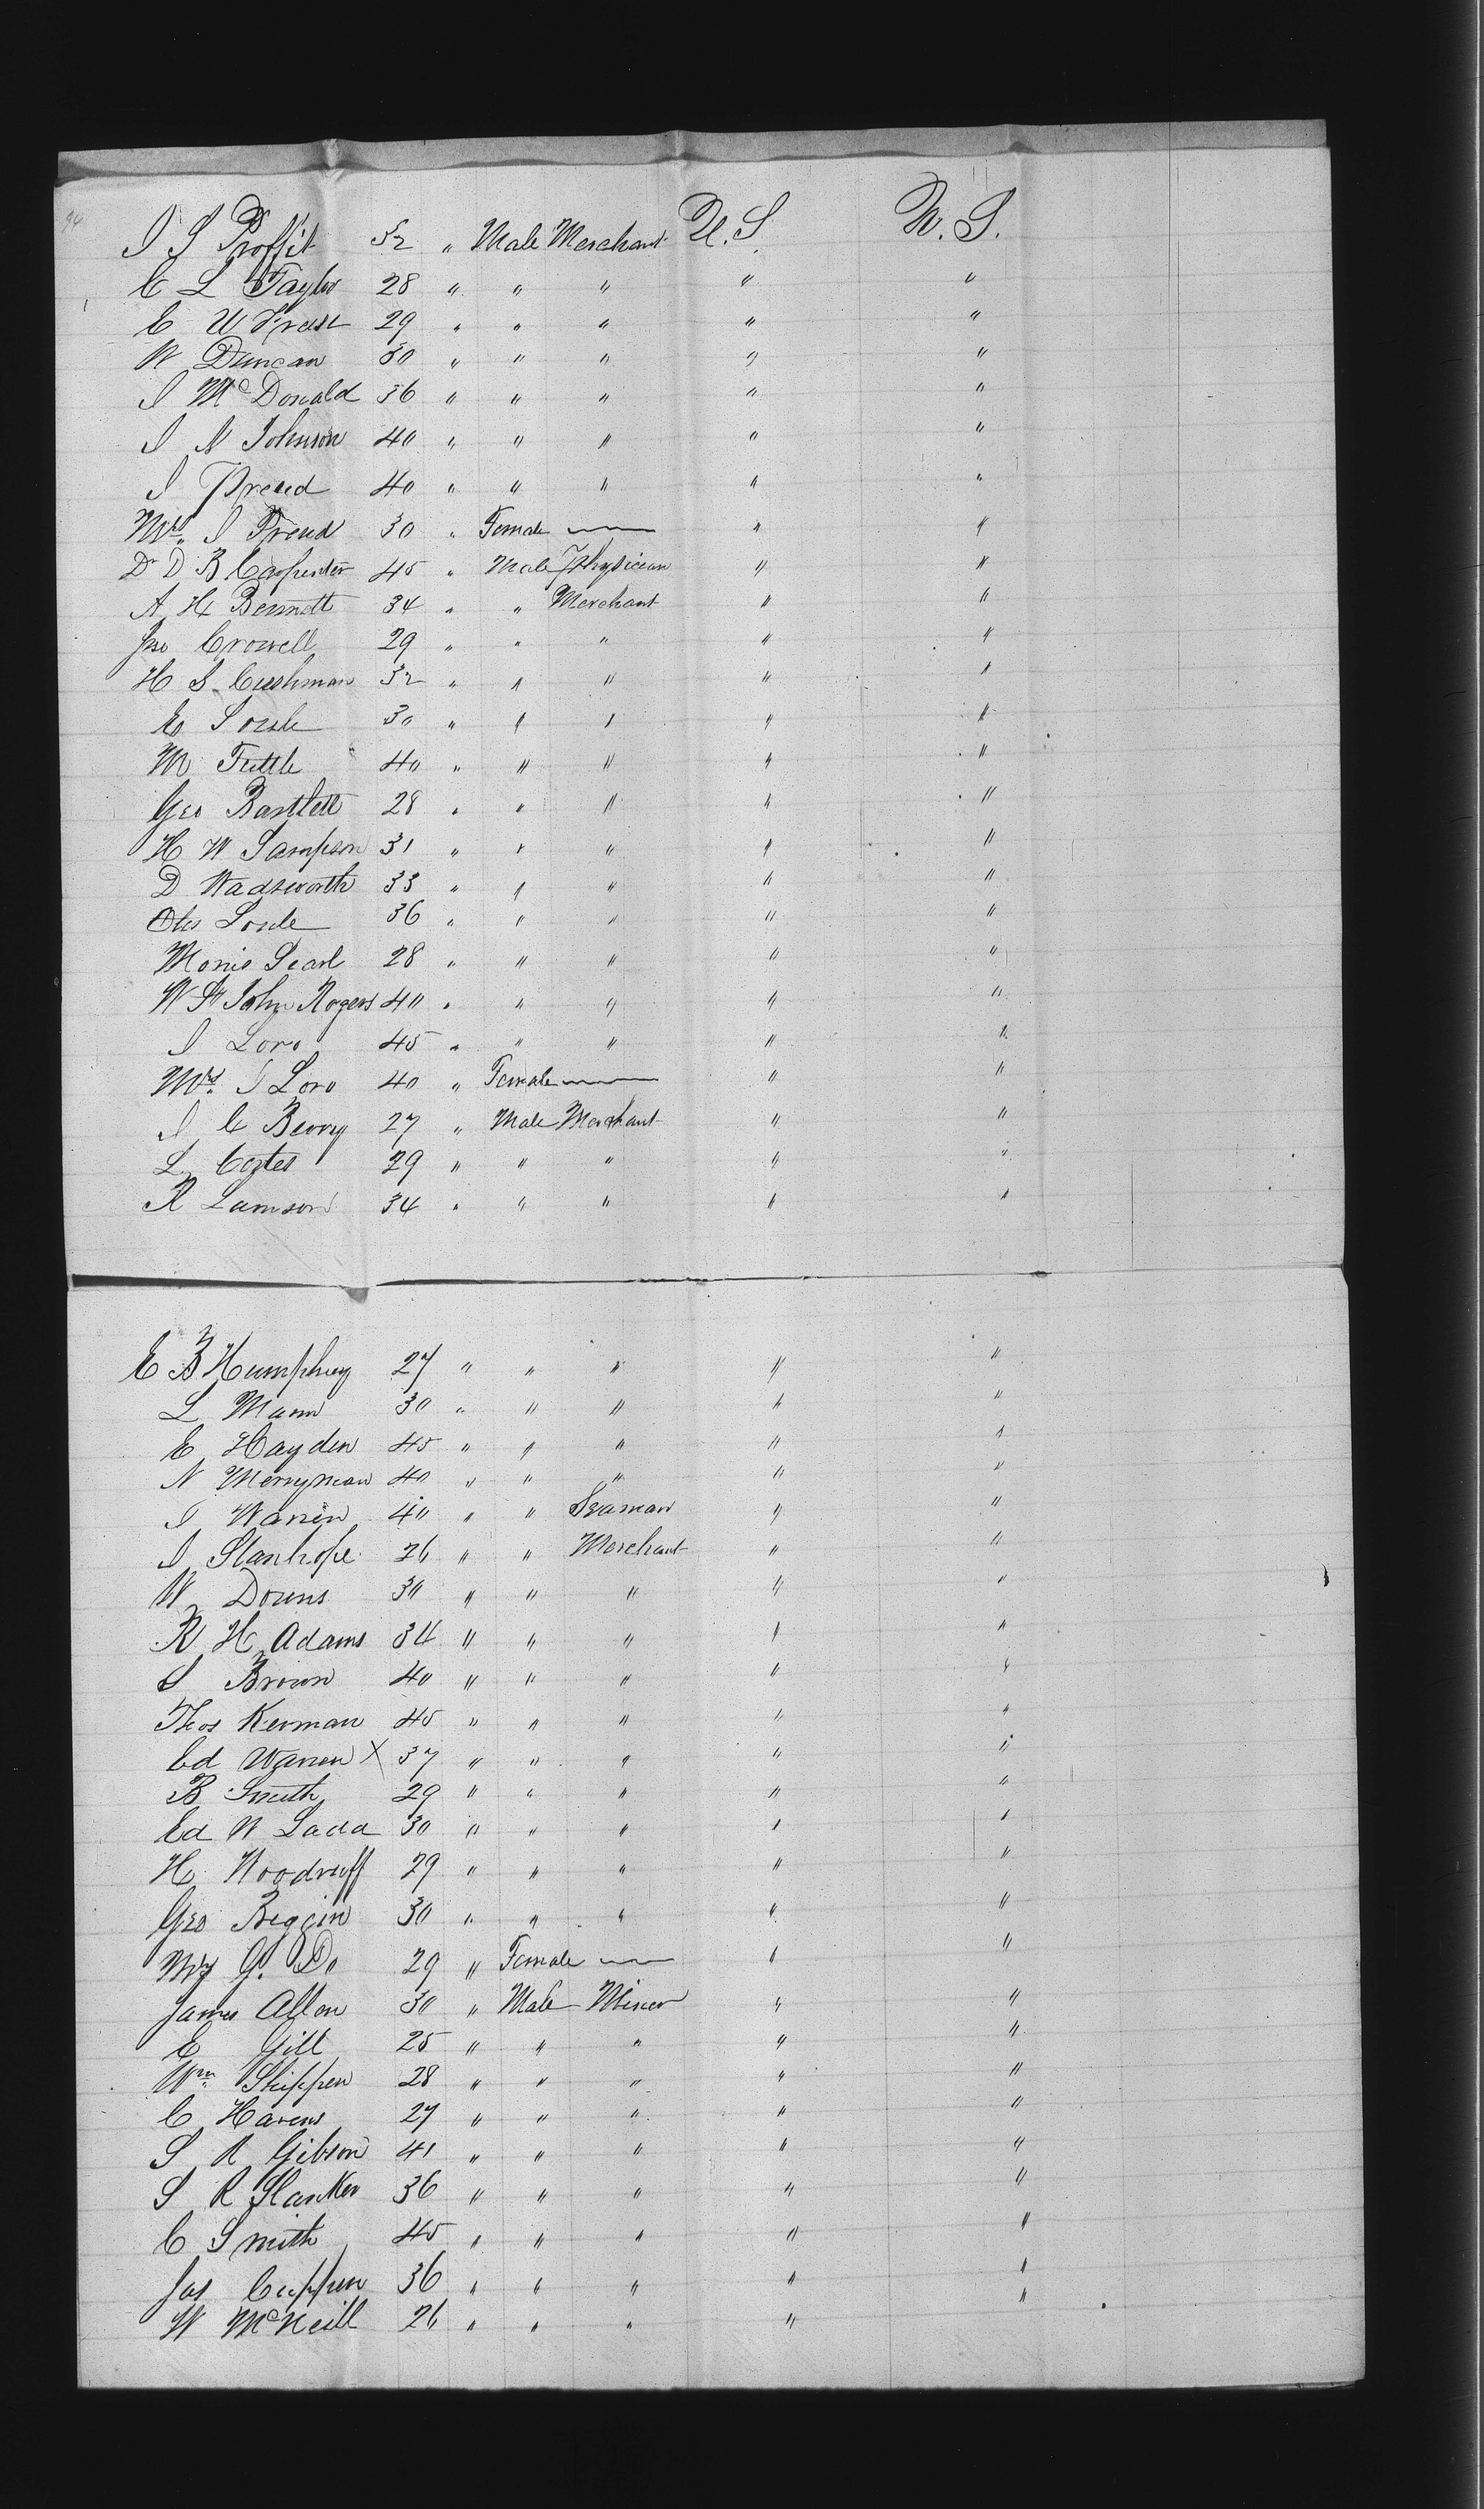 94
J S Proffit 52 " Male Merchant U.S. U.S.
C L Taylor 28 " " " " "
E W Frost 29 " " " " "
W Duncan 30 " " " " "
J McDonald 36 " " " " "
J N Johnson 40 " " " " "
J Freud 40 " " " " "
Mrs. J Freud 30 " Female — " "
Dr D B Carpenter 45 " Male Physician " "
A H Bennett 34 " " Merchant " "
Jno Crowell 29 " " " " "
H S Cushman 32 " " " " "
E Soule 30 " " " " "
M Tuttle 40 " " " " "
Geo Bartlett 28 " " " " "
H W Sampson 31 " " " " "
D Wadsworth 33 " " " " "
Otis Soule 36 " " " " "
Morris Pearl 28 " " " " "
W St John Rogers 40 " " " " "
J Loro 45 " " " " "
Mrs. J Loro 40 " Female — " "
J C Berry 27 " Male Merchant " "
L Coztes 29 " " " " "
R Lamson 34 " " " " "
E B Humphrey 27 " " " " "
L Mann 30 " " " " "
E Hayden 45 " " " " "
N Merryman 40 " " " " "
J Warren 40 " " Seaman " "
J Stanhope 26 " " Merchant " "
W Downs 30 " " " " "
R H Adams 34 " " " " "
S Brown 40 " " " " "
Thos Kerman 45 " " " " "
Ed Warren X 37 " " " " "
B Smith 29 " " " " "
Ed W Ladd 30 " " " " "
H Woodruff 29 " " " " "
Geo Beggin 30 " " " " "
Mrs G. Do 29 " Female — " "
James Allen 30 " Male Miner " "
E Gill 25 " " " " "
Wm Skippen 28 " " " " "
C Havens 27 " " " " "
S R Gibson 41 " " " " "
S R Slanker 36 " " " " "
C Smith 45 " " " " "
Jas Cuppen 36 " " " " "
W McNeill 26 " " " " "